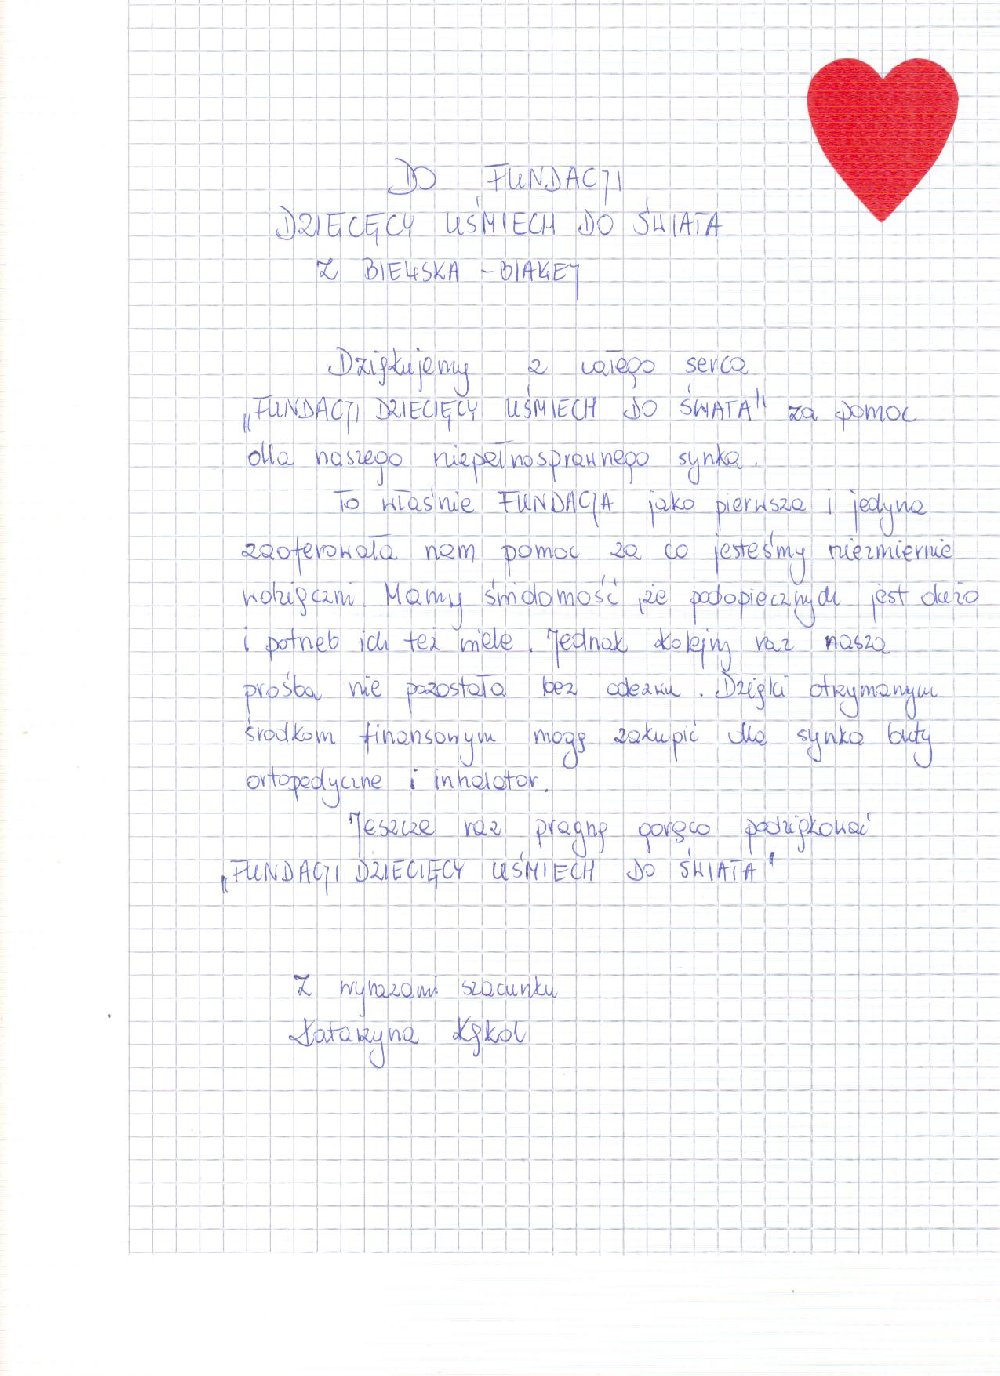 DO FUNDACJI
DZIĘCĘCY UŚMIECH DO ŚWIATA
Z BIELSKA-BIAŁEJ
Dziękujemy z całego serca
„FUNDACJI DZIECIĘCY UŚMIECH DO ŚWIATA" za pomoc
dla naszego niepełnosprawnego synka.
To właśnie FUNDACJA jako pierwsza i jedyna
zaoferowała nam pomoc za co jesteśmy niezmiernie
wdzięczni. Mamy świdomość że podopiecznych jest dużo
i potrzeb ich też wiele. Jednak kolejny raz nasza
prośba nie pozostała bez odezwu. Dzięki otrzymanym
środkom finansowym mogę zakupić dla synka buty
ortopedyczne i inhalator.
Jeszcze raz pragnę gorąco podziękować
„FUNDACJI DZIECIĘCY UŚMIECH DO ŚWIATA"
Z wyrazami szacunku
Katarzyna Kękol